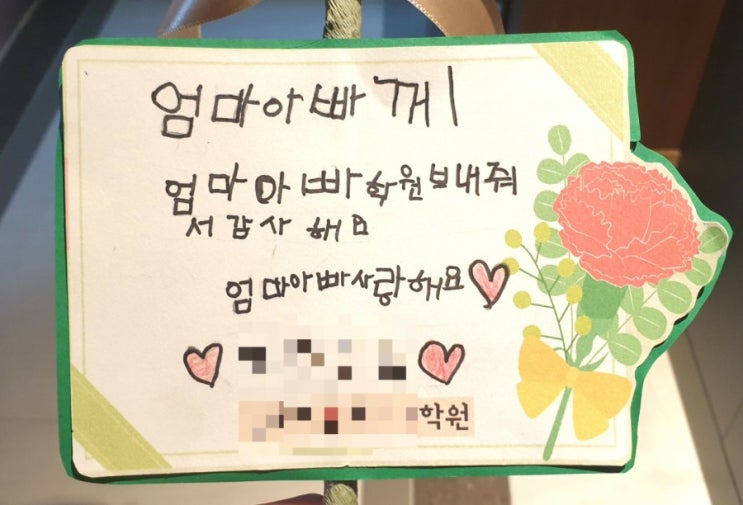 엄마아빠께
엄마아빠학원보내줘
서감사해요
엄마아빠사랑해요
학원